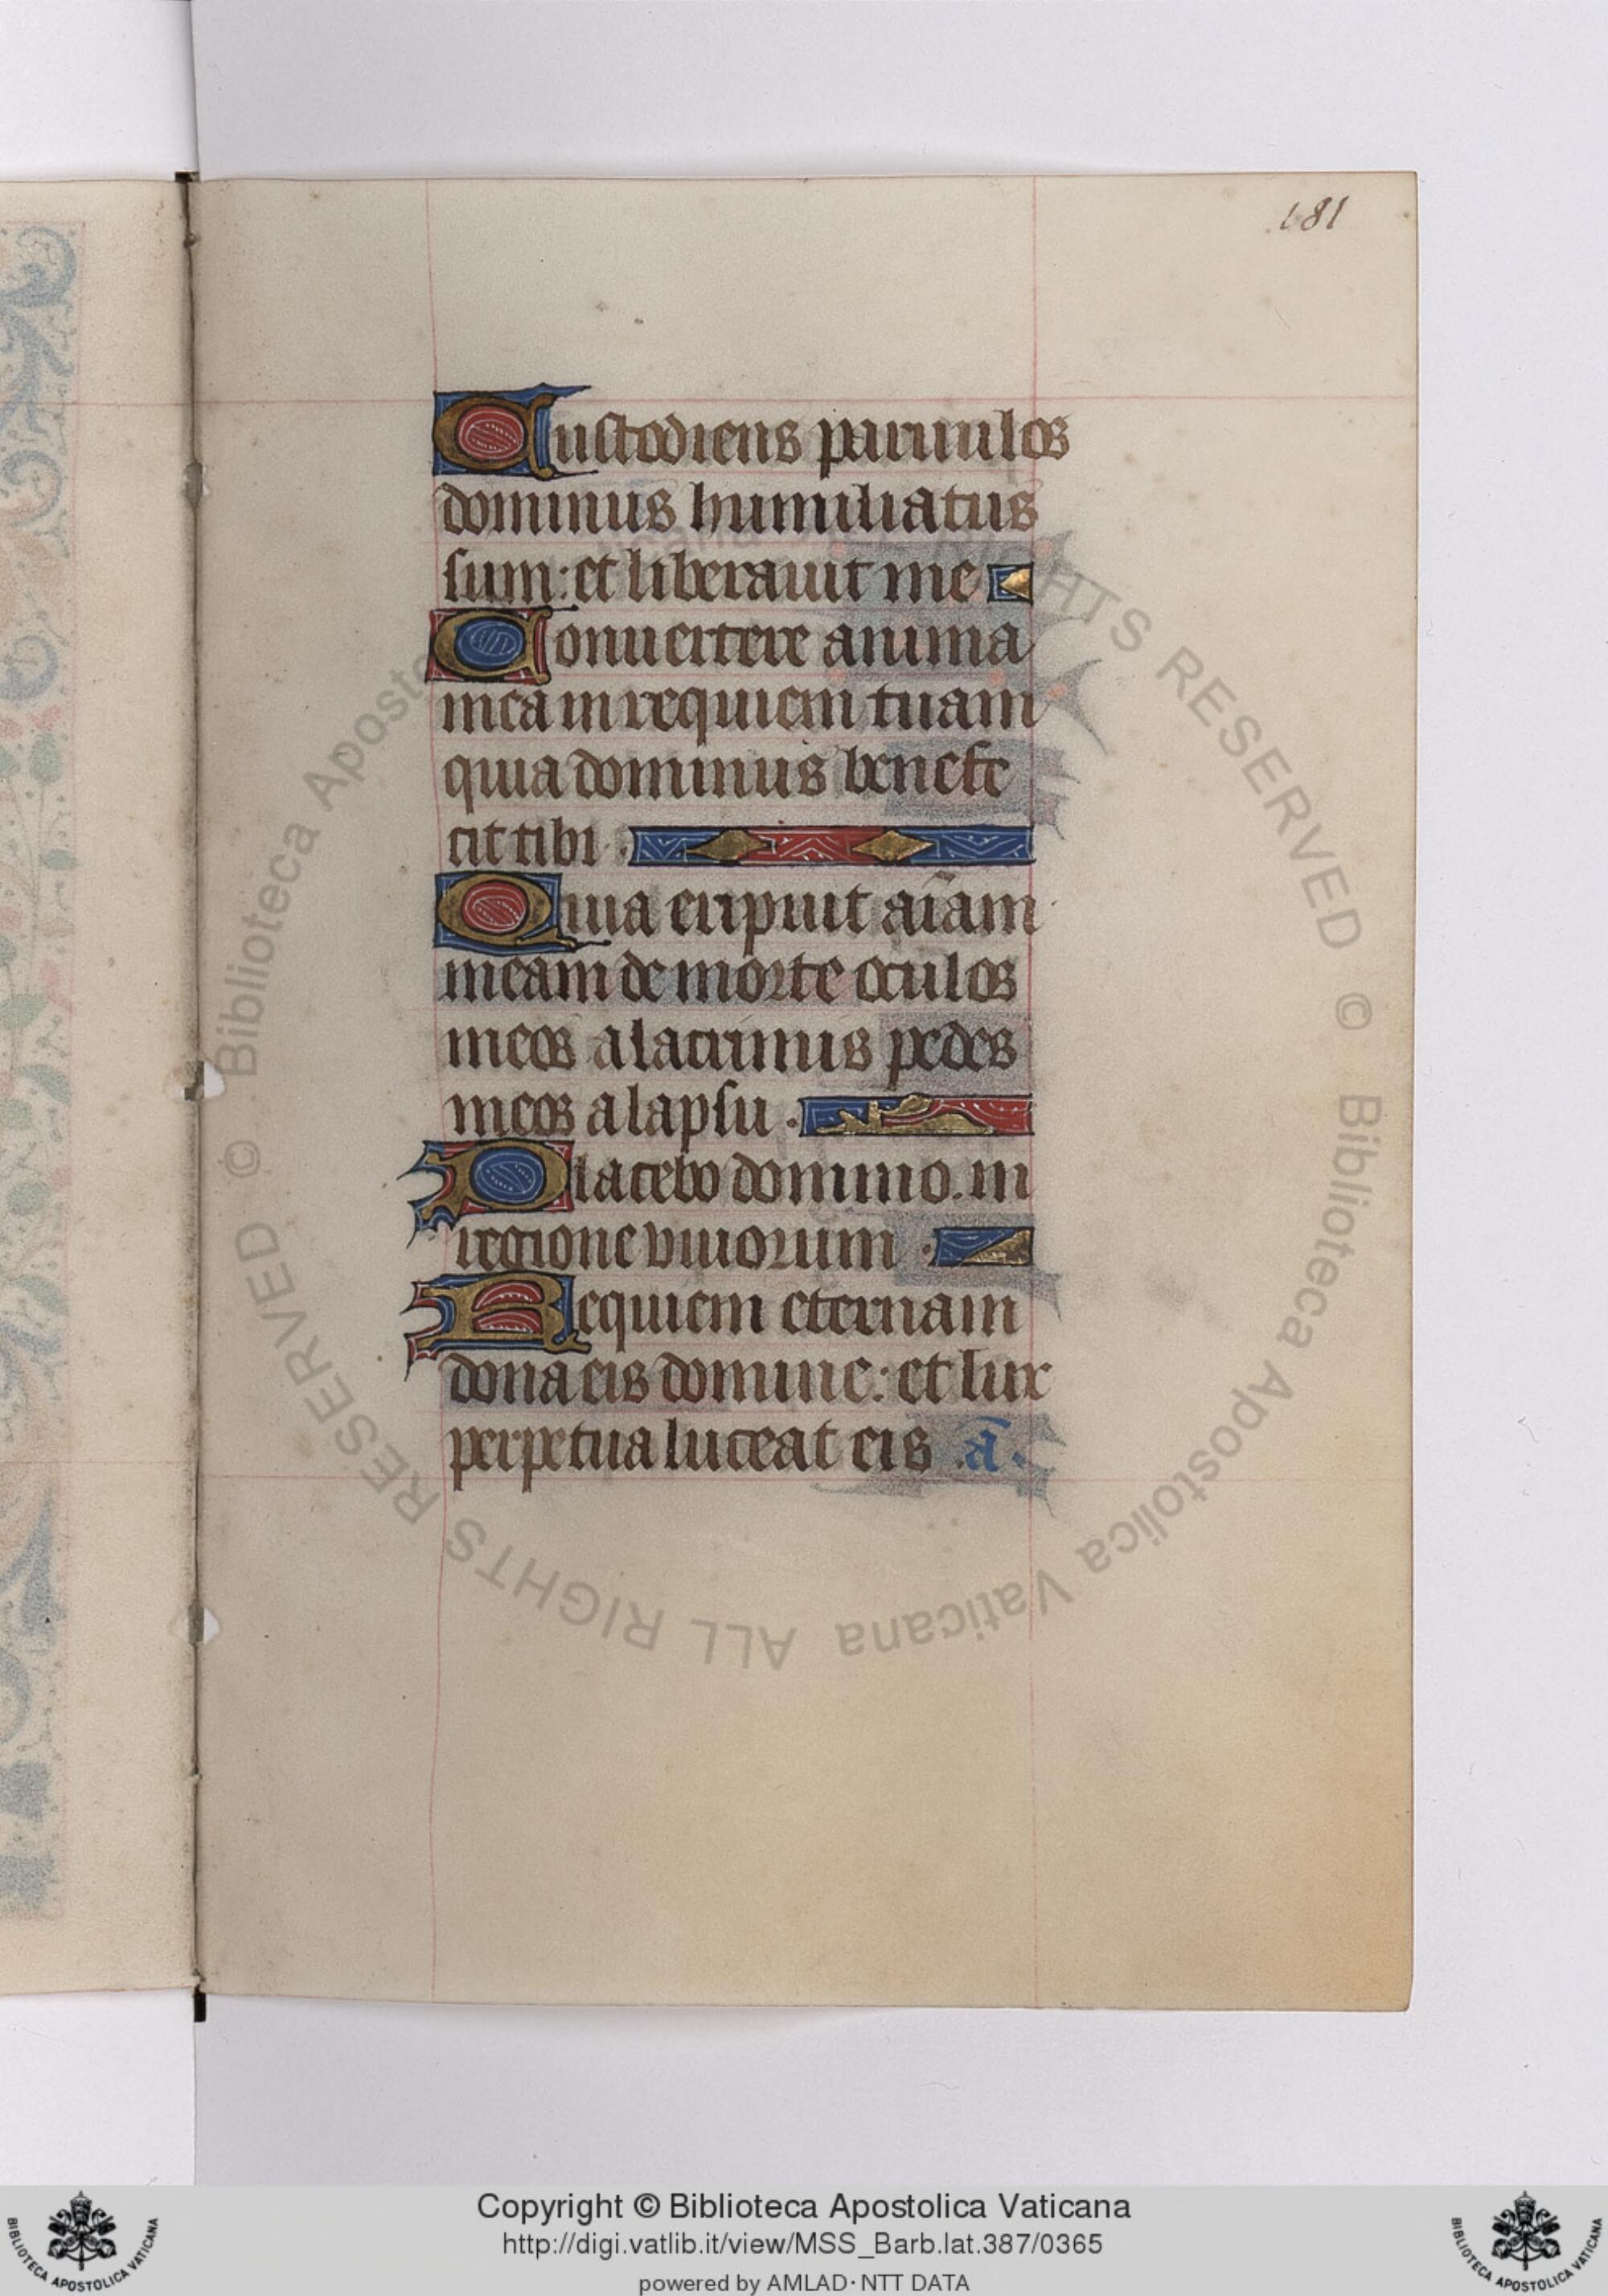 181
Custodiens paruulos
dominus humiliatus
sum: et liberauit me
Conuertere anima
mea in requiem tuam
quia dominus benefe
cit tibi.
Quia eripuit aīam
meam de morte oculos
meos a lacrimis pedes
meos a lapsu.
Placebo domino. in
regione viuorum.
Requiem eternam
dona eis domine: et lux
perpetua luceat eis. ā.
© Biblioteca Apostolica Vaticana ALL RIGHTS RESERVED
© Biblioteca Apostolica Vaticana ALL RIGHTS RESERVED
Copyright © Biblioteca Apostolica Vaticana
http://digi.vatlib.it/view/MSS_Barb.lat.387/0365
powered by AMLAD·NTT DATA
BIBLIOTECA APOSTOLICA VATICANA
BIBLIOTECA APOSTOLICA VATICANA